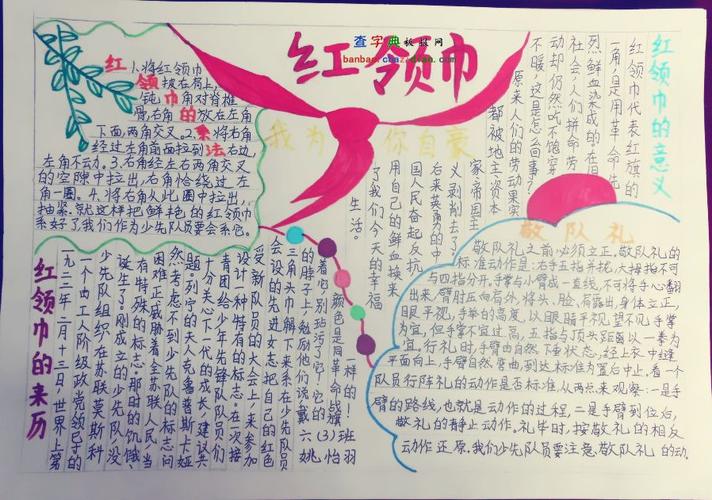 查字典板报网
banbao.chazidian.com
红领巾
我为你自豪
红领巾的系法
1.将红领巾
披在肩上,
钝角对脊椎
骨,右角放在左角
下面,两角交叉。2.将右角
经过左角前面拉到右边
左角不动。3.右角经左右两角交叉
的空隙中拉出,右角恰绕过左角
一圈。4.将右角从此圈中拉出,
抽紧。就这样把鲜艳的红领巾
系好了我们作为少先队员要会系它。
红领巾的意义
红领巾代表红旗的
一角,是用革命先
烈鲜血染成的在旧
社会,人们拼命劳
动却仍然吃不饱穿
不暖,这是怎么回事?
原来人们的劳动果实
都被地主资本
家帝国主
义剥削去了
后来英勇的中
国人民奋起反抗
用自己的鲜血换来
了我们今天的幸福
生活。
红领巾的来历
一九二二年二月十三日世界上第
一个由工人阶级政党领导的
少先队组织在苏联莫斯科
诞生了。刚成立的少先队没
有特殊的标志,那时的饥饿,
困难正威胁着全苏联人民,当
然考虑不到少先队的标志问
题。列宁的夫人克鲁普斯卡娅
十分关心下一代的成长,建议共
青团给少年先锋队队员们
一种特有的标志。在一次接
受新队员的大会上,来参加
会议的先进女工把自己的红色
三角头巾解下来系在少先队员
的脖子上,勉励他们说:戴
着它,别玷污了它!它的
颜色是同革命战旗
一样的!
六(3)班
姚怡羽
敬队礼
敬队礼之前必须立正。敬队礼的
标准动作是:右手五指并拢,大拇指不可
与四指分开,手掌与小臂成一直线,不可将手心翻
出来,臂肘应向右外,将头、脸、、身体立正,
眼平视,手举的高度,以眼睛平视望不见手掌
为宜,但手掌不宜过高,五指与头顶距离以一拳为
宜,行礼时,手臂由自然下垂状态,经上衣中缝
平面向上,手臂自然弯曲,到达标准位置后中止,看一个
队员行队礼的动作是否标准,从两点来观察:一是手
臂的路线,也就是动作的过程,二是手臂到位后,
敬礼的静止动作。礼毕时,按敬礼的相反
动作还原。我们少先队员要注意敬队礼的动